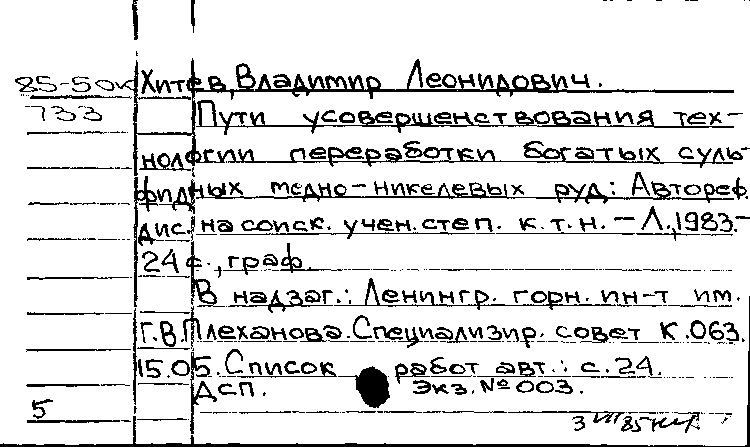 85-5 ок Хитев, Владимир Леонидович.
733 Пути усовершенствования тех-
нологии переработки богатых суль-
фидных медно-никелевых руд: Автореф.
дис. на соиск. учен. степ. к.т.н. - Л., 1983.-
24 с., граф.
В надзаг.: Ленингр. горн. ин-т им.
Г.В.Плеханова. Специализир. совет К.063.
15.05. Список работ авт.: с.24.
ДСП. Экз. № 003.
5
3 VII 85